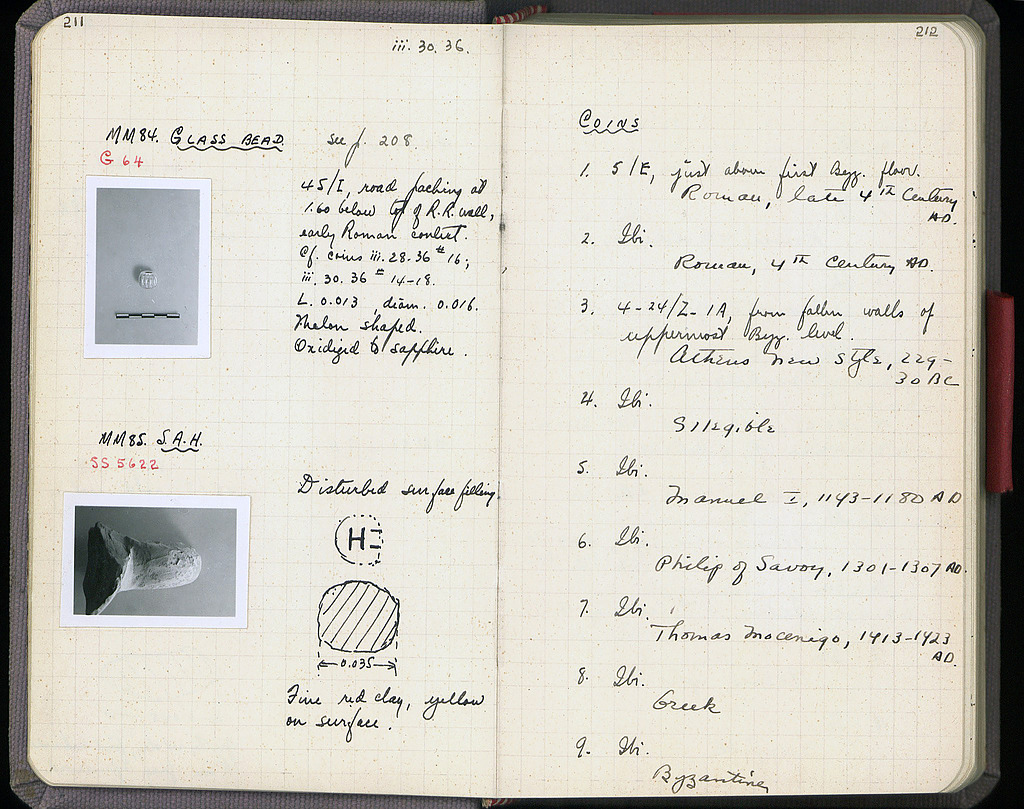 211
iii. 30. 36.
MM84. GLASS BEAD. see p. 208
G 64
45/I, road packing at
1.60 below top of R.R. wall,
early Roman context.
Cf. coins iii. 28. 36 # 16;
iii. 30. 36 # 14-18.
L. 0.013, diam. 0.016.
Melon shaped.
Oxidized to sapphire.
MM85. S.A.H.
SS 5622
Disturbed surface filling
H
0.035
Fine red clay, yellow
on surface.
212
COINS
1. 5/E, just above first Byz. floor.
Roman, late 4th Century
AD.
2. Ibi.
Roman, 4th Century AD.
3. 4-24/Z-1A, from fallen walls of
uppermost Byz. level.
Athens New Style, 229-
30 BC
4. Ibi.
Illegible
5. Ibi.
Manuel I, 1143-1180 AD
6. Ibi.
Philip of Savoy, 1301-1307 AD.
7. Ibi.
Thomas Mocenigo, 1413-1423
AD.
8. Ibi.
Greek
9. Ibi.
Byzantine